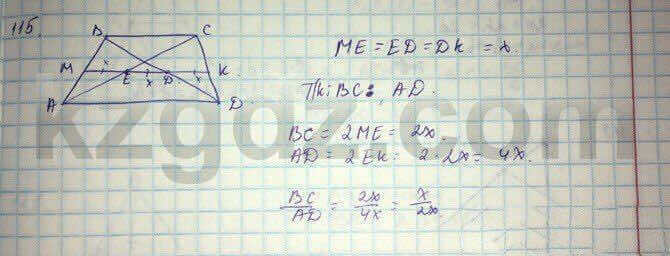 115.
B C
M x E x D x K
A D
ME = ED = DK = x
BC : AD.
BC = 2ME = 2x.
AD = 2EK = 2·2x = 4x.
BC/AD = 2x/4x = x/2x
kzgdz.com